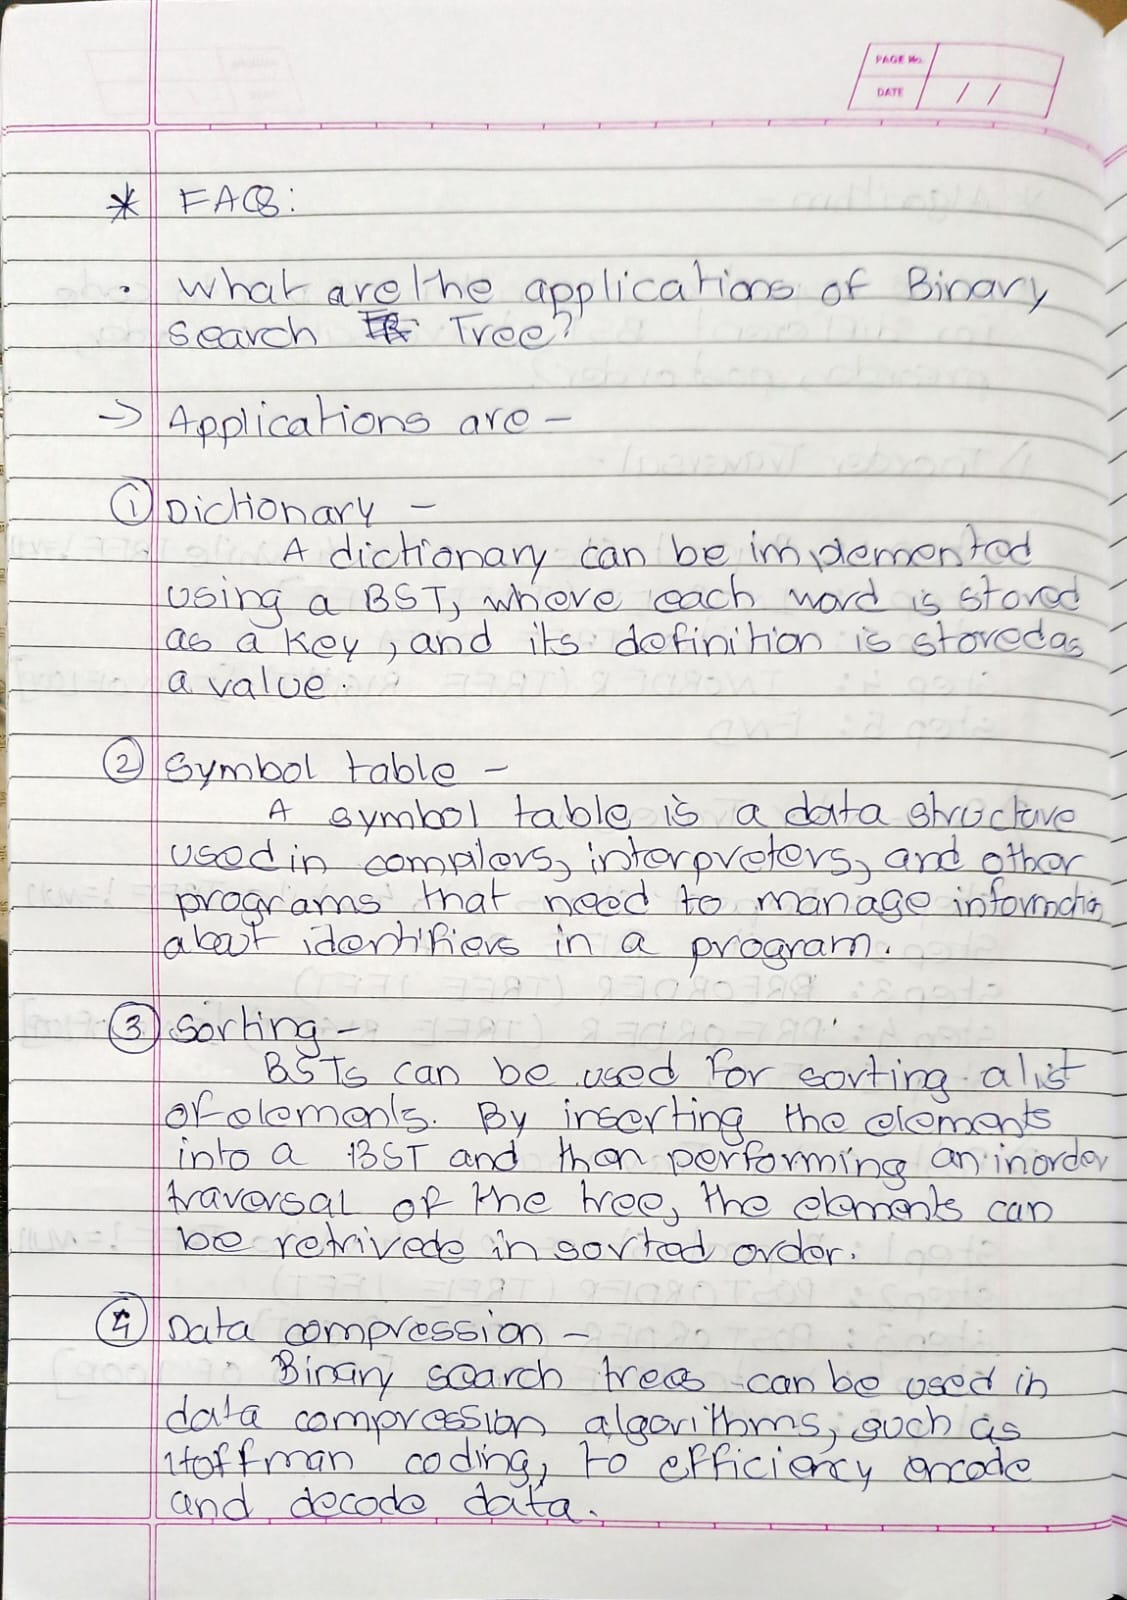 PAGE No.
DATE / /
* FAQs:
. What are the applications of Binary
search Tree?
→ Applications are -
① Dictionary -
A dictionary can be implemented
using a BST, where each word is stored
as a key, and its definition is stored as
a value.
② Symbol table -
A symbol table is a data structure
used in compilers, interpreters, and other
programs that need to manage information
about identifiers in a program.
③ Sorting -
BSTs can be used for sorting a list
of elements. By inserting the elements
into a BST and then performing an inorder
traversal of the tree, the elements can
be retrivede in sorted order.
④ Data compression -
Binary search trees can be used in
data compression algorithms, such as
Hoffman coding, to efficiency encode
and decode data.